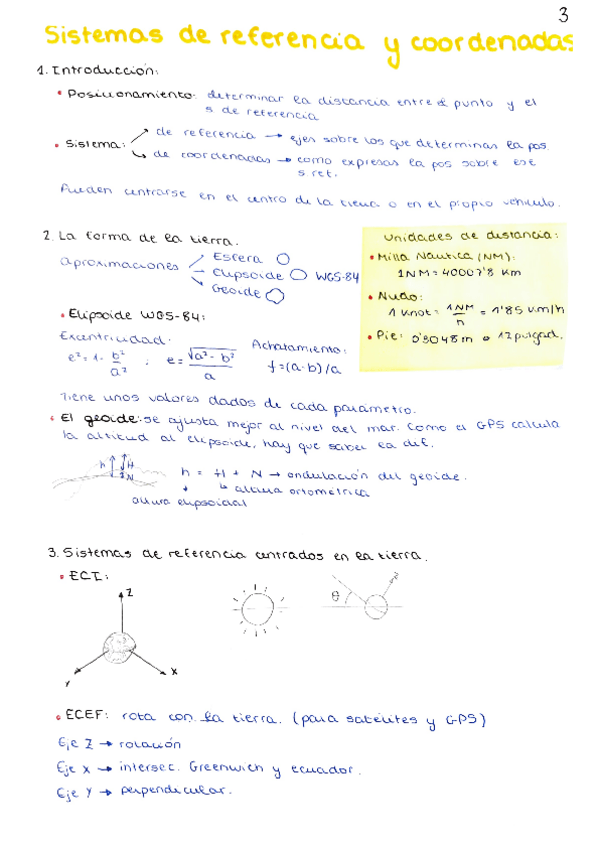 3
Sistemas de referencia y coordenadas
1. Introducción:
• Posicionamiento: determinar la distancia entre el punto y el
s de referencia
• Sistema: de referencia → ejes sobre los que determinas la pos
de coordenadas → como expresas la pos sobre ese
s ref.
Pueden centrarse en el centro de la tierra o en el propio vehículo.
2. La forma de la tierra.
Aproximaciones
Esfera
Elipsoide WGS-84
Geoide
Unidades de distancia:
• Milla Náutica (NM):
1NM = 40007'8 Km
• Nudo:
1 Knot = 1NM/h = 1'85 Km/h
• Pie: 0'3048m o 12 pulgad.
• Elipsoide WGS-84:
Excentricidad: Achatamiento:
e² = 1 - b²/a² ; e = √(a² - b²)/a f = (a-b)/a
Tiene unos valores dados de cada parámetro.
• El geoide: se ajusta mejor al nivel del mar. Como el GPS calcula
la altitud al elipsoide, hay que saber la dif.
h H N
h = H + N → ondulación del geoide.
altura ortométrica
altura elipsoidal
3. Sistemas de referencia centrados en la tierra.
• ECI:
Z
Y X
θ
• ECEF: rota con la tierra. (para satélites y GPS)
Eje Z → rotación
Eje X → intersec. Greenwich y ecuador.
Eje Y → perpendicular.